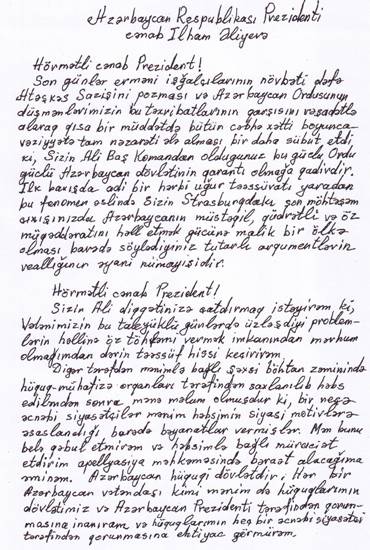 Azərbaycan Respublikası Prezidenti
cənab İlham Əliyevə
Hörmətli cənab Prezident!
Son günlər erməni işğalçılarının növbəti dəfə
Atəşkəs Sazişini pozması və Azərbaycan Ordusunun
düşmənlərimizin bu təxribatlarının qarşısını rəşadətlə
alaraq qısa bir müddətdə bütün cəbhə xətti boyunca
vəziyyətə tam nəzarəti ələ alması bir daha sübut etdi
ki, Sizin Ali Baş Komandan olduğunuz bu güclü Ordu
güclü Azərbaycan dövlətinin qaranti olmağa qadirdir.
İlk baxışda adi bir hərbi uğur təəssüratı yaradan
bu fenomen əslində Sizin Strasburqdakı son möhtəşəm
çıxışınızda Azərbaycanın müstəqil, qüdrətli və öz
müqəddəratını həll etmək gücünə malik bir ölkə
olması barədə söylədiyiniz tutarlı arqumentlərin
reallığının əyani nümayişidir.
Hörmətli cənab Prezident!
Sizin Ali diqqətinizə çatdırmaq istəyirəm ki,
Vətənimizin bu taleyüklü günlərdə üzləşdiyi problem-
lərin həllinə öz töhfəmi vermək imkanından məhrum
olmağımdan dərin təəssüf hissi keçirirəm.
Digər tərəfdən mənimlə bağlı şəxsi böhtan zəminində
hüquq-mühafizə orqanları tərəfindən saxlanılıb həbs
edilməmdən sonra mənə məlum olmuşdur ki, bir neçə
əcnəbi siyasətçilər mənim həbsimin siyasi motivlərə
əsaslandığı barədə bəyanatlar vermişlər. Mən bunu
belə qəbul etmirəm və həbsimlə bağlı müraciət
etdirim apellyasiya məhkəməsində bəraət alacağıma
əminəm. Azərbaycan hüquqi dövlətdir. Hər bir
Azərbaycan vətəndaşı kimi mənim də hüquqlarımın
dövlətimiz və Azərbaycan Prezidenti tərəfindən qorun-
masına inanıram və hüquqlarımın heç bir əcnəbi siyasətçi
tərəfindən qorunmasına ehtiyac görmürəm.